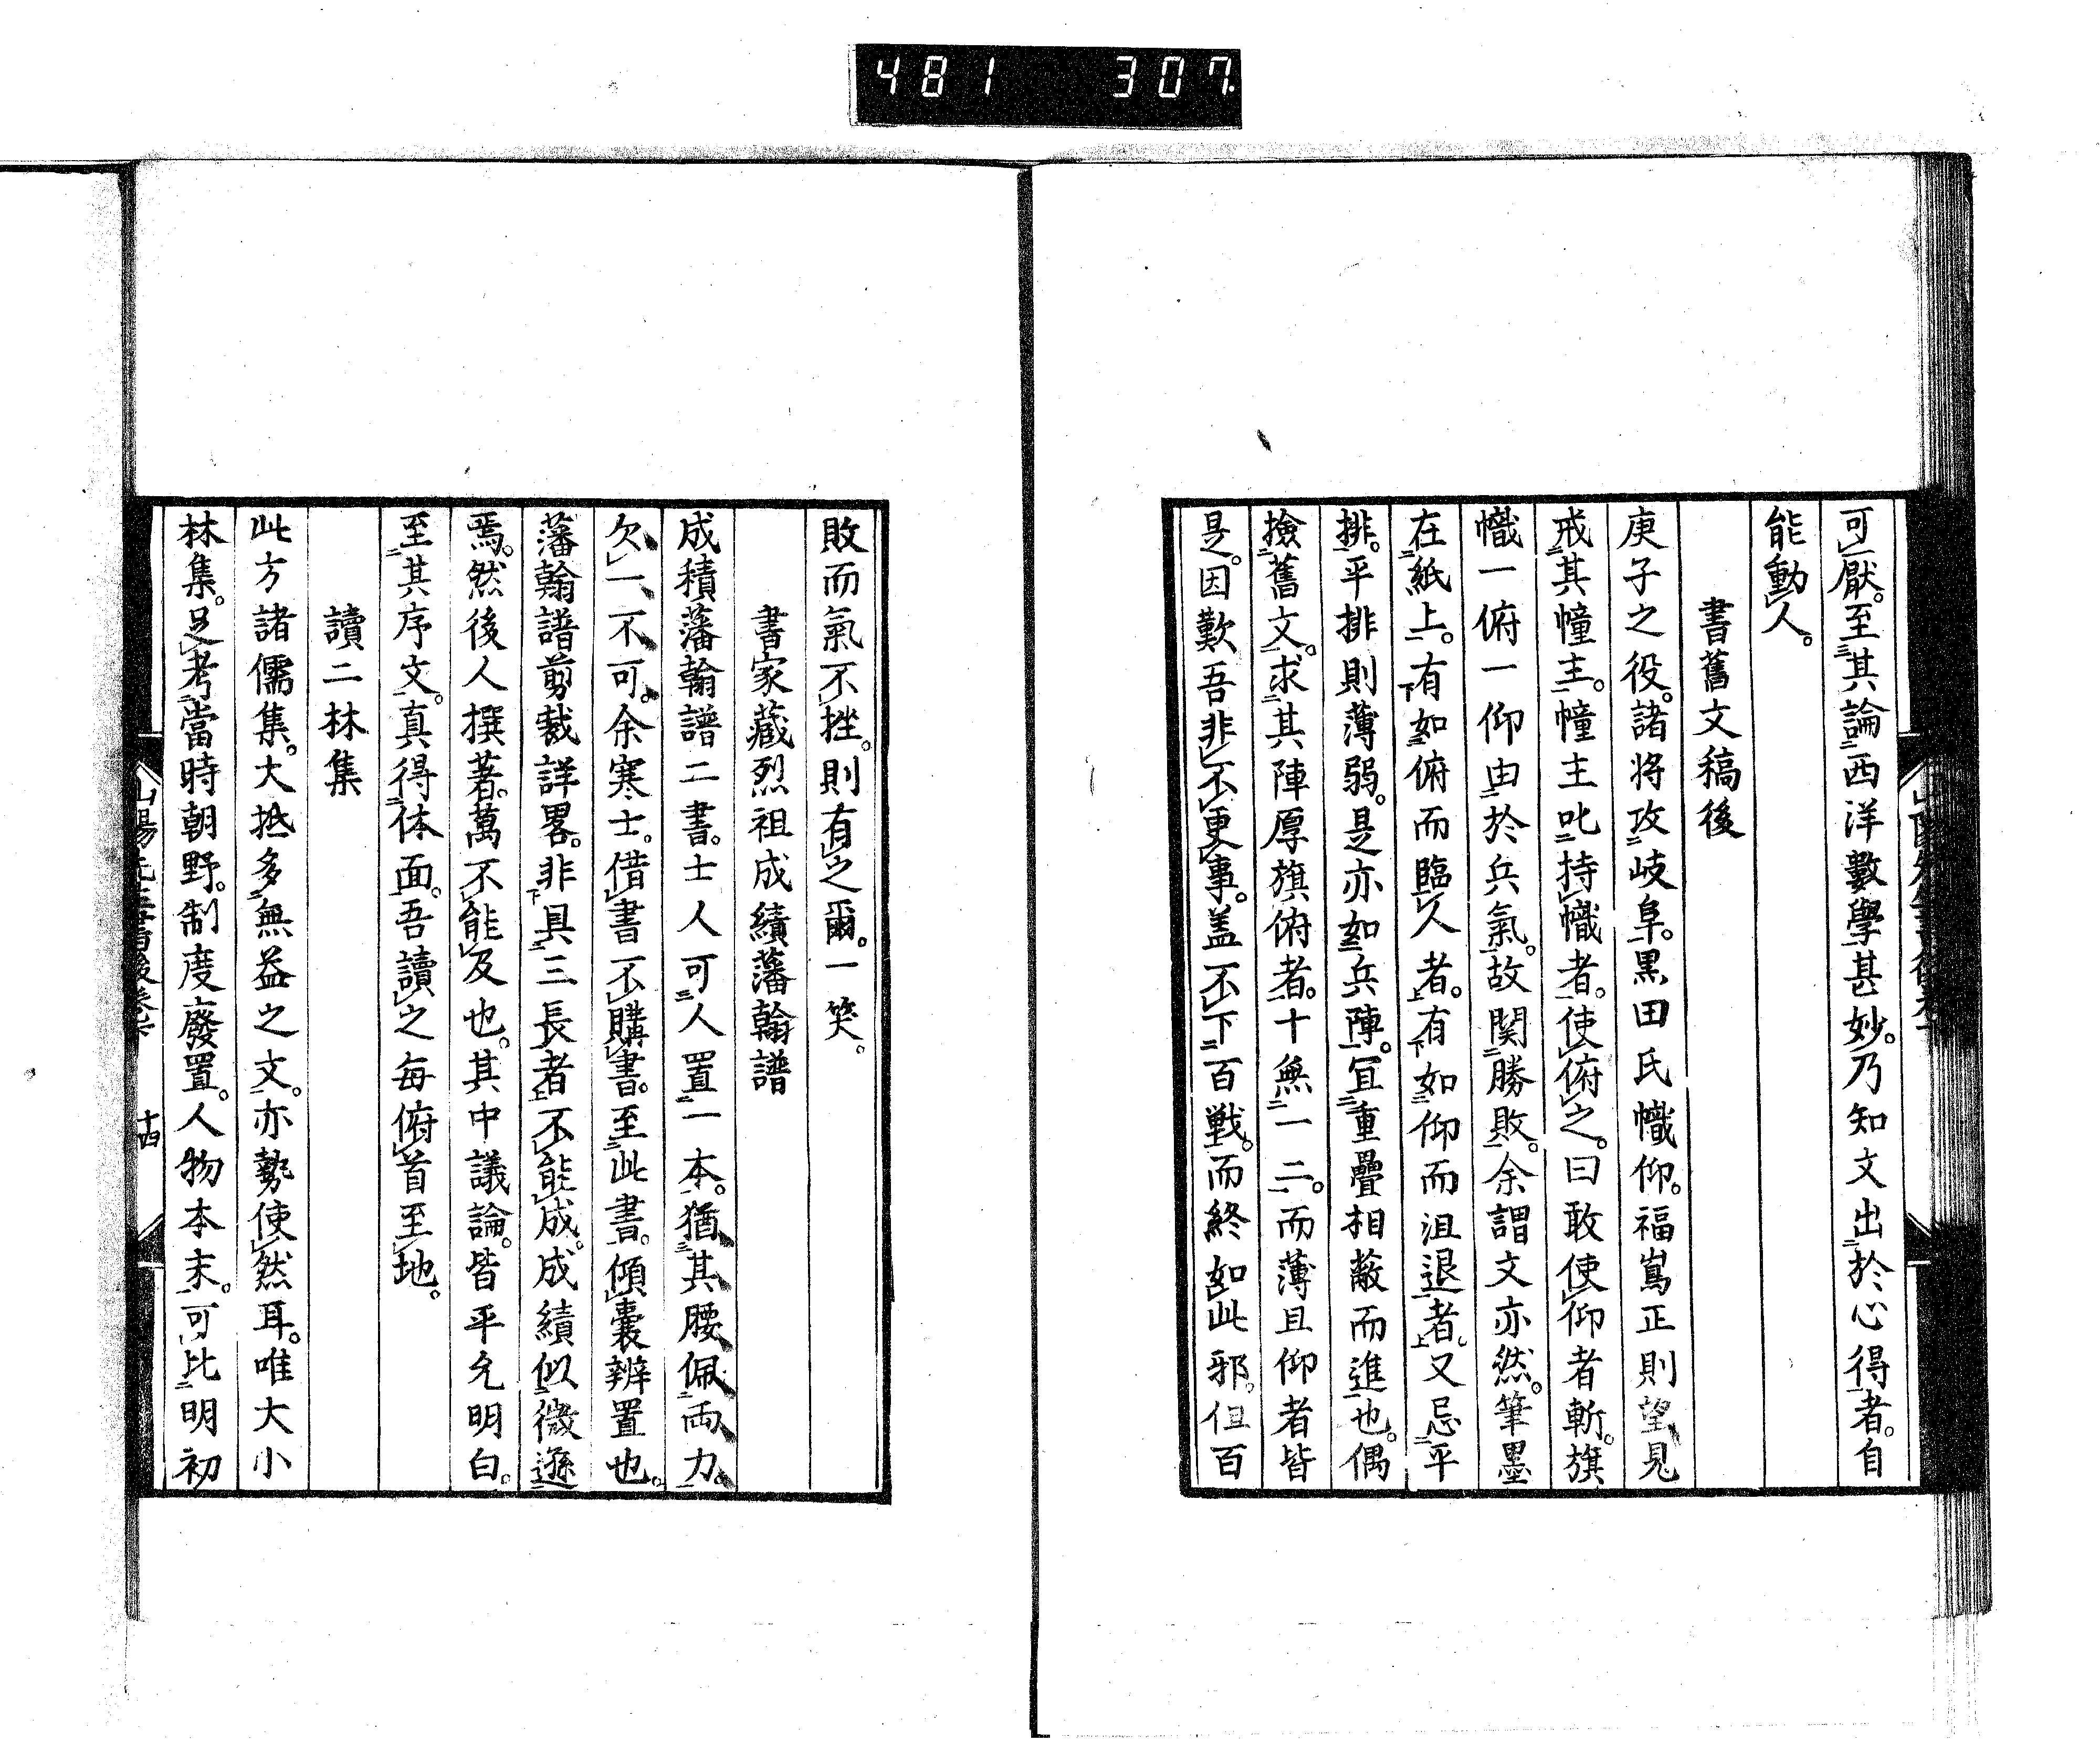 481 307.
可厭。至其論西洋數學甚妙。乃知文出於心得者。自
能動人。
書舊文稿後
庚子之役。諸将攻岐阜。黒田氏幟仰。福嶌正則望見
戒其幢主。幢主叱持幟者。使俯之。曰敢使仰者斬。旗
幟一俯一仰由於兵氣。故関勝敗。余謂文亦然。筆墨
在紙上。有如俯而臨人者。有如仰而沮退者。又忌平
排。平排則薄弱。是亦如兵陣。冝重疊相蔽而進也。偶
撿舊文。求其陣厚旗俯者。十無一二。而薄且仰者皆
是。因歎吾非不更事。盖不下百戦。而終如此邪。但百
敗而氣不挫。則有之爾。一笑。
書家藏烈祖成績藩翰譜
成積藩翰譜二書。士人可人置一本。猶其腰佩両刀。
欠一、不可。余寒士。借書不購書。至此書。傾囊辨置也。
藩翰譜剪裁詳畧。非具三長者不能成。成績似微遜
焉。然後人撰著。萬不能及也。其中議論。皆平允明白。
至其序文。真得体面。吾讀之毎俯首至地。
讀二林集
此方諸儒集。大抵多無益之文。亦勢使然耳。唯大小
林集。足考當時朝野。制度廢置。人物本末。可比明初
十四